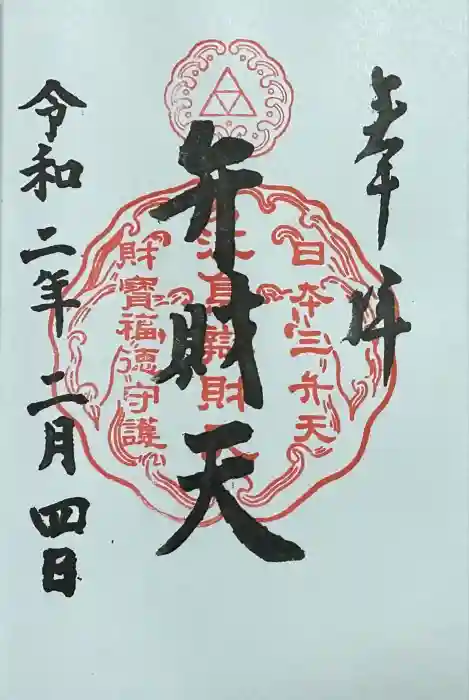 奉拝
日本三弁天
江島辨財天
財寶福徳守護
弁財天
令和二年二月四日